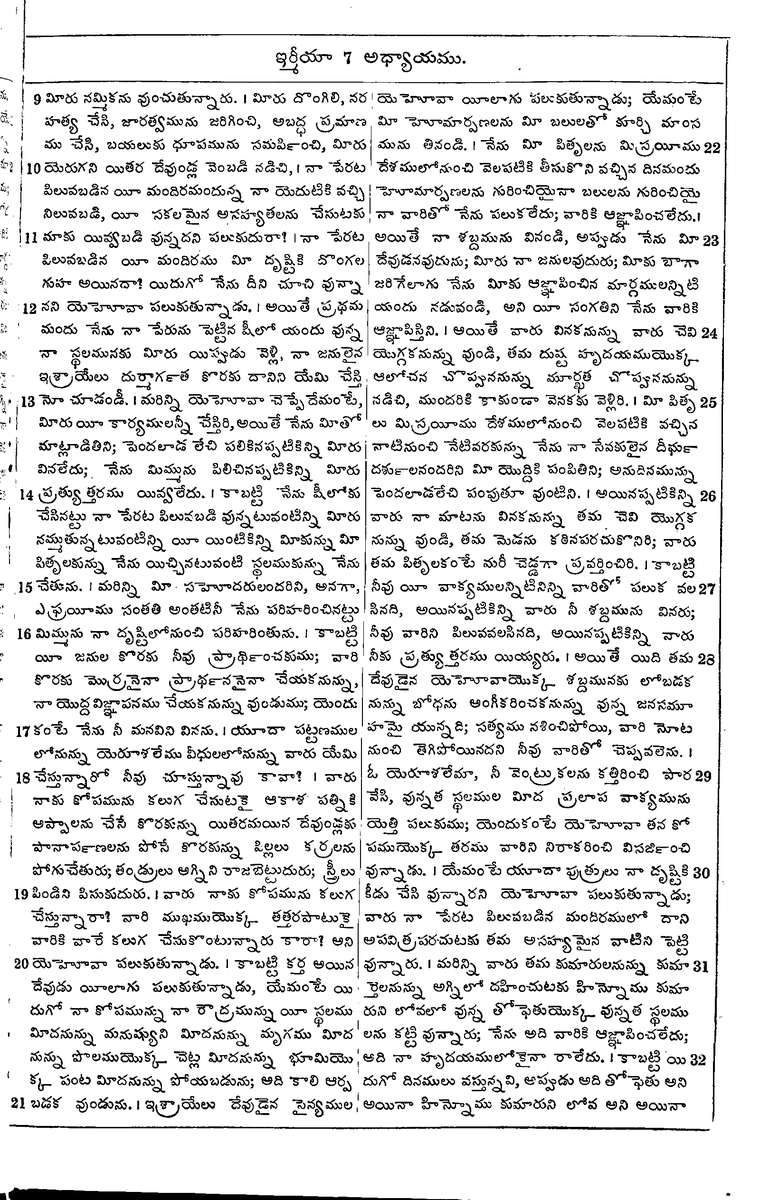 ఇర్మీయా 7 అధ్యాయము.
9 మీరు నమ్మికను వుంచుతున్నారు. । మీరు దొంగిలి, నర
హత్య చేసి, జారత్వమును జరిగించి, అబద్ధ ప్రమాణ
ము చేసి, బయలుకు ధూపమును సమర్పించి, మీరు
10 యెరుగని యితర దేవుండ్ల వెంబడి నడిచి, । నా పేరట
పిలువబడిన యీ మందిరమందున్న నా యెదుటికి వచ్చి
నిలువబడి, యీ సకలమైన అసహ్యతలను చేసుటకు
11 మాకు యివ్వబడి వున్నదని పలుకుదురా? । నా పేరట
పిలువబడిన యీ మందిరము మీ దృష్టికి దొంగల
గుహ అయినదా? యిదుగో నేను దీని చూచి వున్నా
12 నని యెహోవా పలుకుతున్నాడు. । అయితే ప్రథమ
మందు నేను నా పేరును పెట్టిన షీలో యందు వున్న
నా స్థలమునకు మీరు యిప్పుడు వెళ్లి, నా జనులైన
ఇశ్రాయేలు దుర్మార్గత కొరకు దానిని యేమి చేస్తి
13 నో చూడండీ. । మరిన్ని యెహోవా చెప్పేదేమంటే,
మీరు యీ కార్యములన్నీ చేస్తిరి, అయితే నేను మీతో
మాట్లాడితిని; పెందలాడ లేచి పలికినప్పటికిన్ని మీరు
వినలేదు; నేను మిమ్మును పిలిచినప్పటికిన్ని మీరు
14 ప్రత్యుత్తరము యివ్వలేదు. । కాబట్టి నేను షీలోకు
చేసినట్టు నా పేరట పిలువబడి వున్నటువంటిన్ని మీరు
నమ్ముతున్నటువంటిన్ని యీ యింటికిన్ని మీకున్ను మీ
పితృలకున్ను నేను యిచ్చినటువంటి స్థలముకున్ను నేను
15 చేతును. । మరిన్ని మీ సహోదరులందరిని, అనగా,
ఎఫ్రయీము సంతతి అంతటినీ నేను పరిహరించినట్టు
16 మిమ్మును నా దృష్టిలోనుంచి పరిహరింతును. । కాబట్టి
యీ జనుల కొరకు నీవు ప్రార్థించకుము; వారి
కొరకు మొర్రనైనా ప్రార్థననైనా చేయకనున్ను,
నా యొద్ద విజ్ఞాపనము చేయకనున్ను వుండుము; యెందు
17 కంటే నేను నీ మనవిని వినను. । యూదా పట్టణముల
లోనున్ను యెరూశలేము వీధులలోనున్ను వారు యేమి
18 చేస్తున్నారో నీవు చూస్తున్నావు కావా? । వారు
నాకు కోపమును కలుగ చేసుటకై ఆకాశ పత్నికి
అప్పాలను చేసే కొరకున్ను యితరమయిన దేవుండ్లకు
పానార్పణలను పోసే కొరకున్ను పిల్లలు కర్రలను
పోగుచేతురు; తండ్రులు అగ్నిని రాజబెట్టుదురు; స్త్రీలు
19 పిండిని పిసుకుదురు. । వారు నాకు కోపమును కలుగ
చేస్తున్నారా? వారి ముఖముయొక్క తత్తరపాటుకై
వారికి వారే కలుగ చేసుకొంటున్నారు కారా? అని
20 యెహోవా పలుకుతున్నాడు. । కాబట్టి కర్త అయిన
దేవుడు యీలాగు పలుకుతున్నాడు, యేమంటే యి
దుగో నా కోపమున్ను నా రౌద్రమున్ను యీ స్థలము
మీదనున్ను మనుష్యుని మీదనున్ను మృగము మీద
నున్ను పొలముయొక్క చెట్ల మీదనున్ను భూమియొ
క్క పంట మీదనున్ను పోయబడును; అది కాలి ఆర్ప
21 బడక వుండును. । ఇశ్రాయేలు దేవుడైన సైన్యముల
యెహోవా యీలాగు పలుకుతున్నాడు; యేమంటే
మీ హోమార్పణలను మీ బలులతో కూర్చి మాంస
మును తినండి. । నేను మీ పితృలను మిస్రయీము 22
దేశములోనుంచి వెలపటికి తీసుకొని వచ్చిన దినమందు
హోమార్పణలను గురించియైనా బలులను గురించియై
నా వారితో నేను పలుకలేదు; వారికి ఆజ్ఞాపించలేదు. ।
అయితే నా శబ్దమును వినండి, అప్పుడు నేను మీ 23
దేవుడనవుదును; మీరు నా జనులవుదురు; మీకు బాగా
జరిగేలాగు నేను మీకు ఆజ్ఞాపించిన మార్గములన్నిటి
యందు నడువండి, అని యీ సంగతిని నేను వారికి
ఆజ్ఞాపిస్తిని. । అయితే వారు వినకనున్ను వారు చెవి 24
యొగ్గకనున్ను వుండి, తమ దుష్ట హృదయముయొక్క
ఆలోచన చొప్పుననున్ను మూర్ఖత చొప్పుననున్ను
నడిచి, ముందరికి కాకుండా వెనకకు వెళ్లిరి. । మీ పితృ 25
లు మిస్రయీము దేశములోనుంచి వెలపటికి వచ్చిన
నాటినుంచి నేటివరకున్ను నేను నా సేవకులైన దీర్ఘ
దర్శులనందరిని మీ యొద్దికి పంపితిని; అనుదినమున్ను
పెందలాడలేచి పంపుతూ వుంటిని. । అయినప్పటికిన్ని 26
వారు నా మాటను వినకనున్ను తమ చెవి యొగ్గక
నున్ను వుండి, తమ మెడను కఠినపరచుకొనిరి; వారు
తమ పితృలకంటే మరీ చెడ్డగా ప్రవర్తించిరి. । కాబట్టి
నీవు యీ వాక్యములన్నిటినిన్ని వారితో పలుక వల 27
సినది, అయినప్పటికిన్ని వారు నీ శబ్దమును వినరు;
నీవు వారిని పిలువవలసినది, అయినప్పటికిన్ని వారు
నీకు ప్రత్యుత్తరము యియ్యరు. । అయితే యిది తమ 28
దేవుడైన యెహోవాయొక్క శబ్దమునకు లోబడక
నున్ను బోధను అంగీకరించకనున్ను వున్న జనసమూ
హమై యున్నది; సత్యము నశించిపోయి, వారి నోట
నుంచి తెగిపోయినదని నీవు వారితో చెప్పవలెను. ।
ఓ యెరూశలేమా, నీ వెంట్రుకలను కత్తిరించి పార 29
వేసి, వున్నత స్థలముల మీద ప్రలాప వాక్యమును
యెత్తి పలుకుము; యెందుకంటే యెహోవా తన కో
పముయొక్క తరము వారిని నిరాకరించి విసర్జించి
వున్నాడు. । యేమంటే యూదా పుత్రులు నా దృష్టికి 30
కీడు చేసి వున్నారని యెహోవా పలుకుతున్నాడు;
వారు నా పేరట పిలువబడిన మందిరములో దాని
అపవిత్రపరచుటకు తమ అసహ్యమైన వాటిని పెట్టి
వున్నారు. । మరిన్ని వారు తమ కుమారులనున్ను కుమా 31
ర్తెలనున్ను అగ్నిలో దహించుటకు హిన్నోము కుమా
రుని లోవలో వున్న తోఫెతుయొక్క వున్నత స్థలము
లను కట్టి వున్నారు; నేను అది వారికి ఆజ్ఞాపించలేదు;
అది నా హృదయములోకైనా రాలేదు. । కాబట్టి యి 32
దుగో దినములు వస్తున్నవి, అప్పుడు అది తోఫెతు అని
అయినా హిన్నోము కుమారుని లోవ అని అయినా